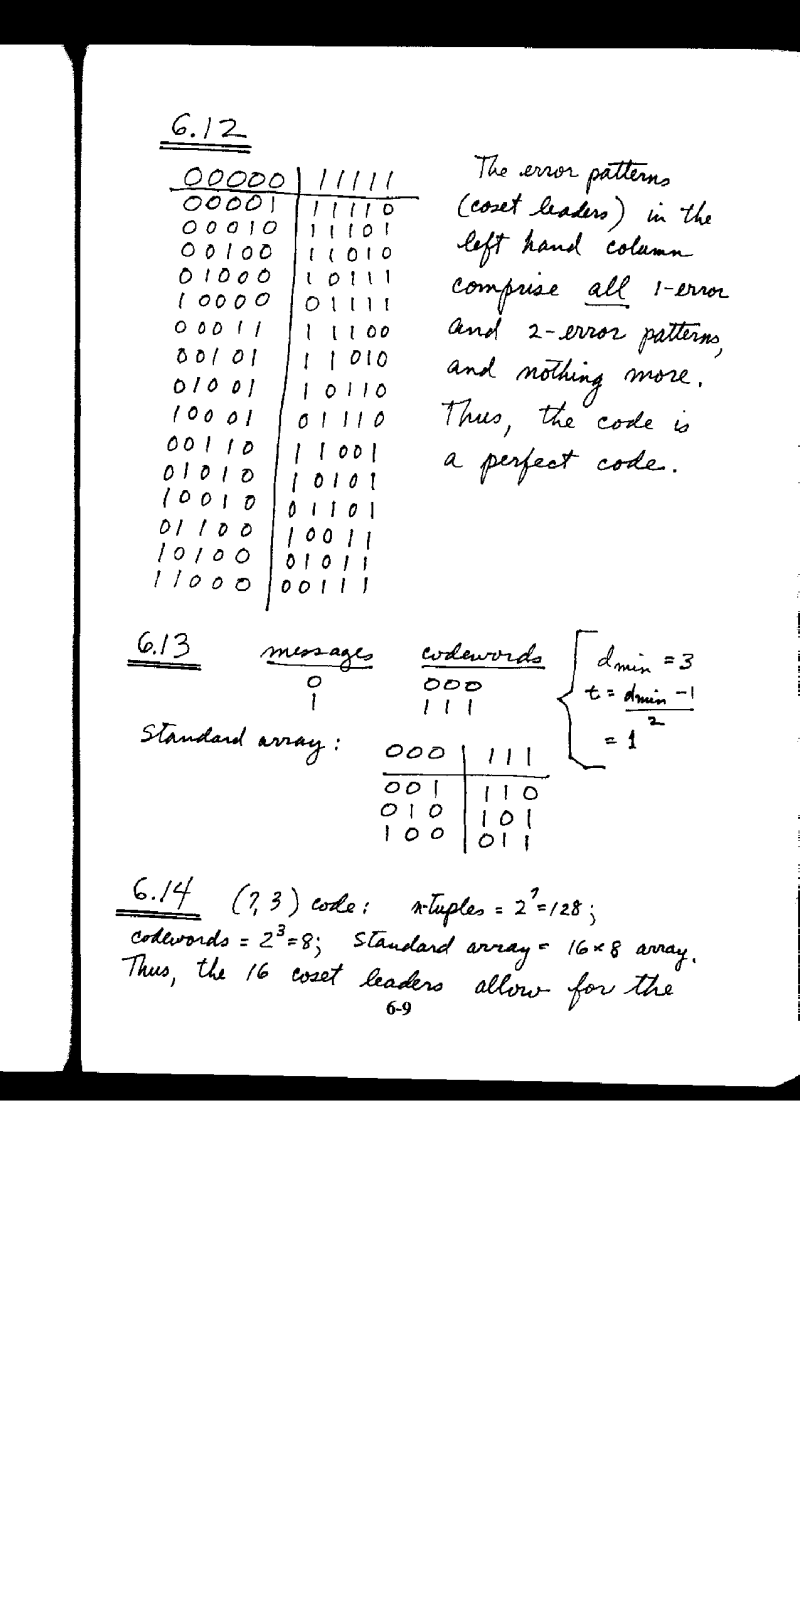 6.12
00000 | 11111
00001 | 11110
00010 | 11101
00100 | 11010
01000 | 10111
10000 | 01111
00011 | 11100
00101 | 11010
01001 | 10110
10001 | 01110
00110 | 11001
01010 | 10101
10010 | 01101
01100 | 10011
10100 | 01011
11000 | 00111
The error patterns
(coset leaders) in the
left hand column
comprise all 1-error
and 2-error patterns,
and nothing more.
Thus, the code is
a perfect code.
6.13 messages codewords
0 000
1 111
dmin = 3
t = (dmin - 1)/2
= 1
Standard array:
000 | 111
001 | 110
010 | 101
100 | 011
6.14 (7,3) code: n-tuples = 2^7=128;
codewords = 2^3=8; Standard array = 16×8 array.
Thus, the 16 coset leaders allow for the
6-9